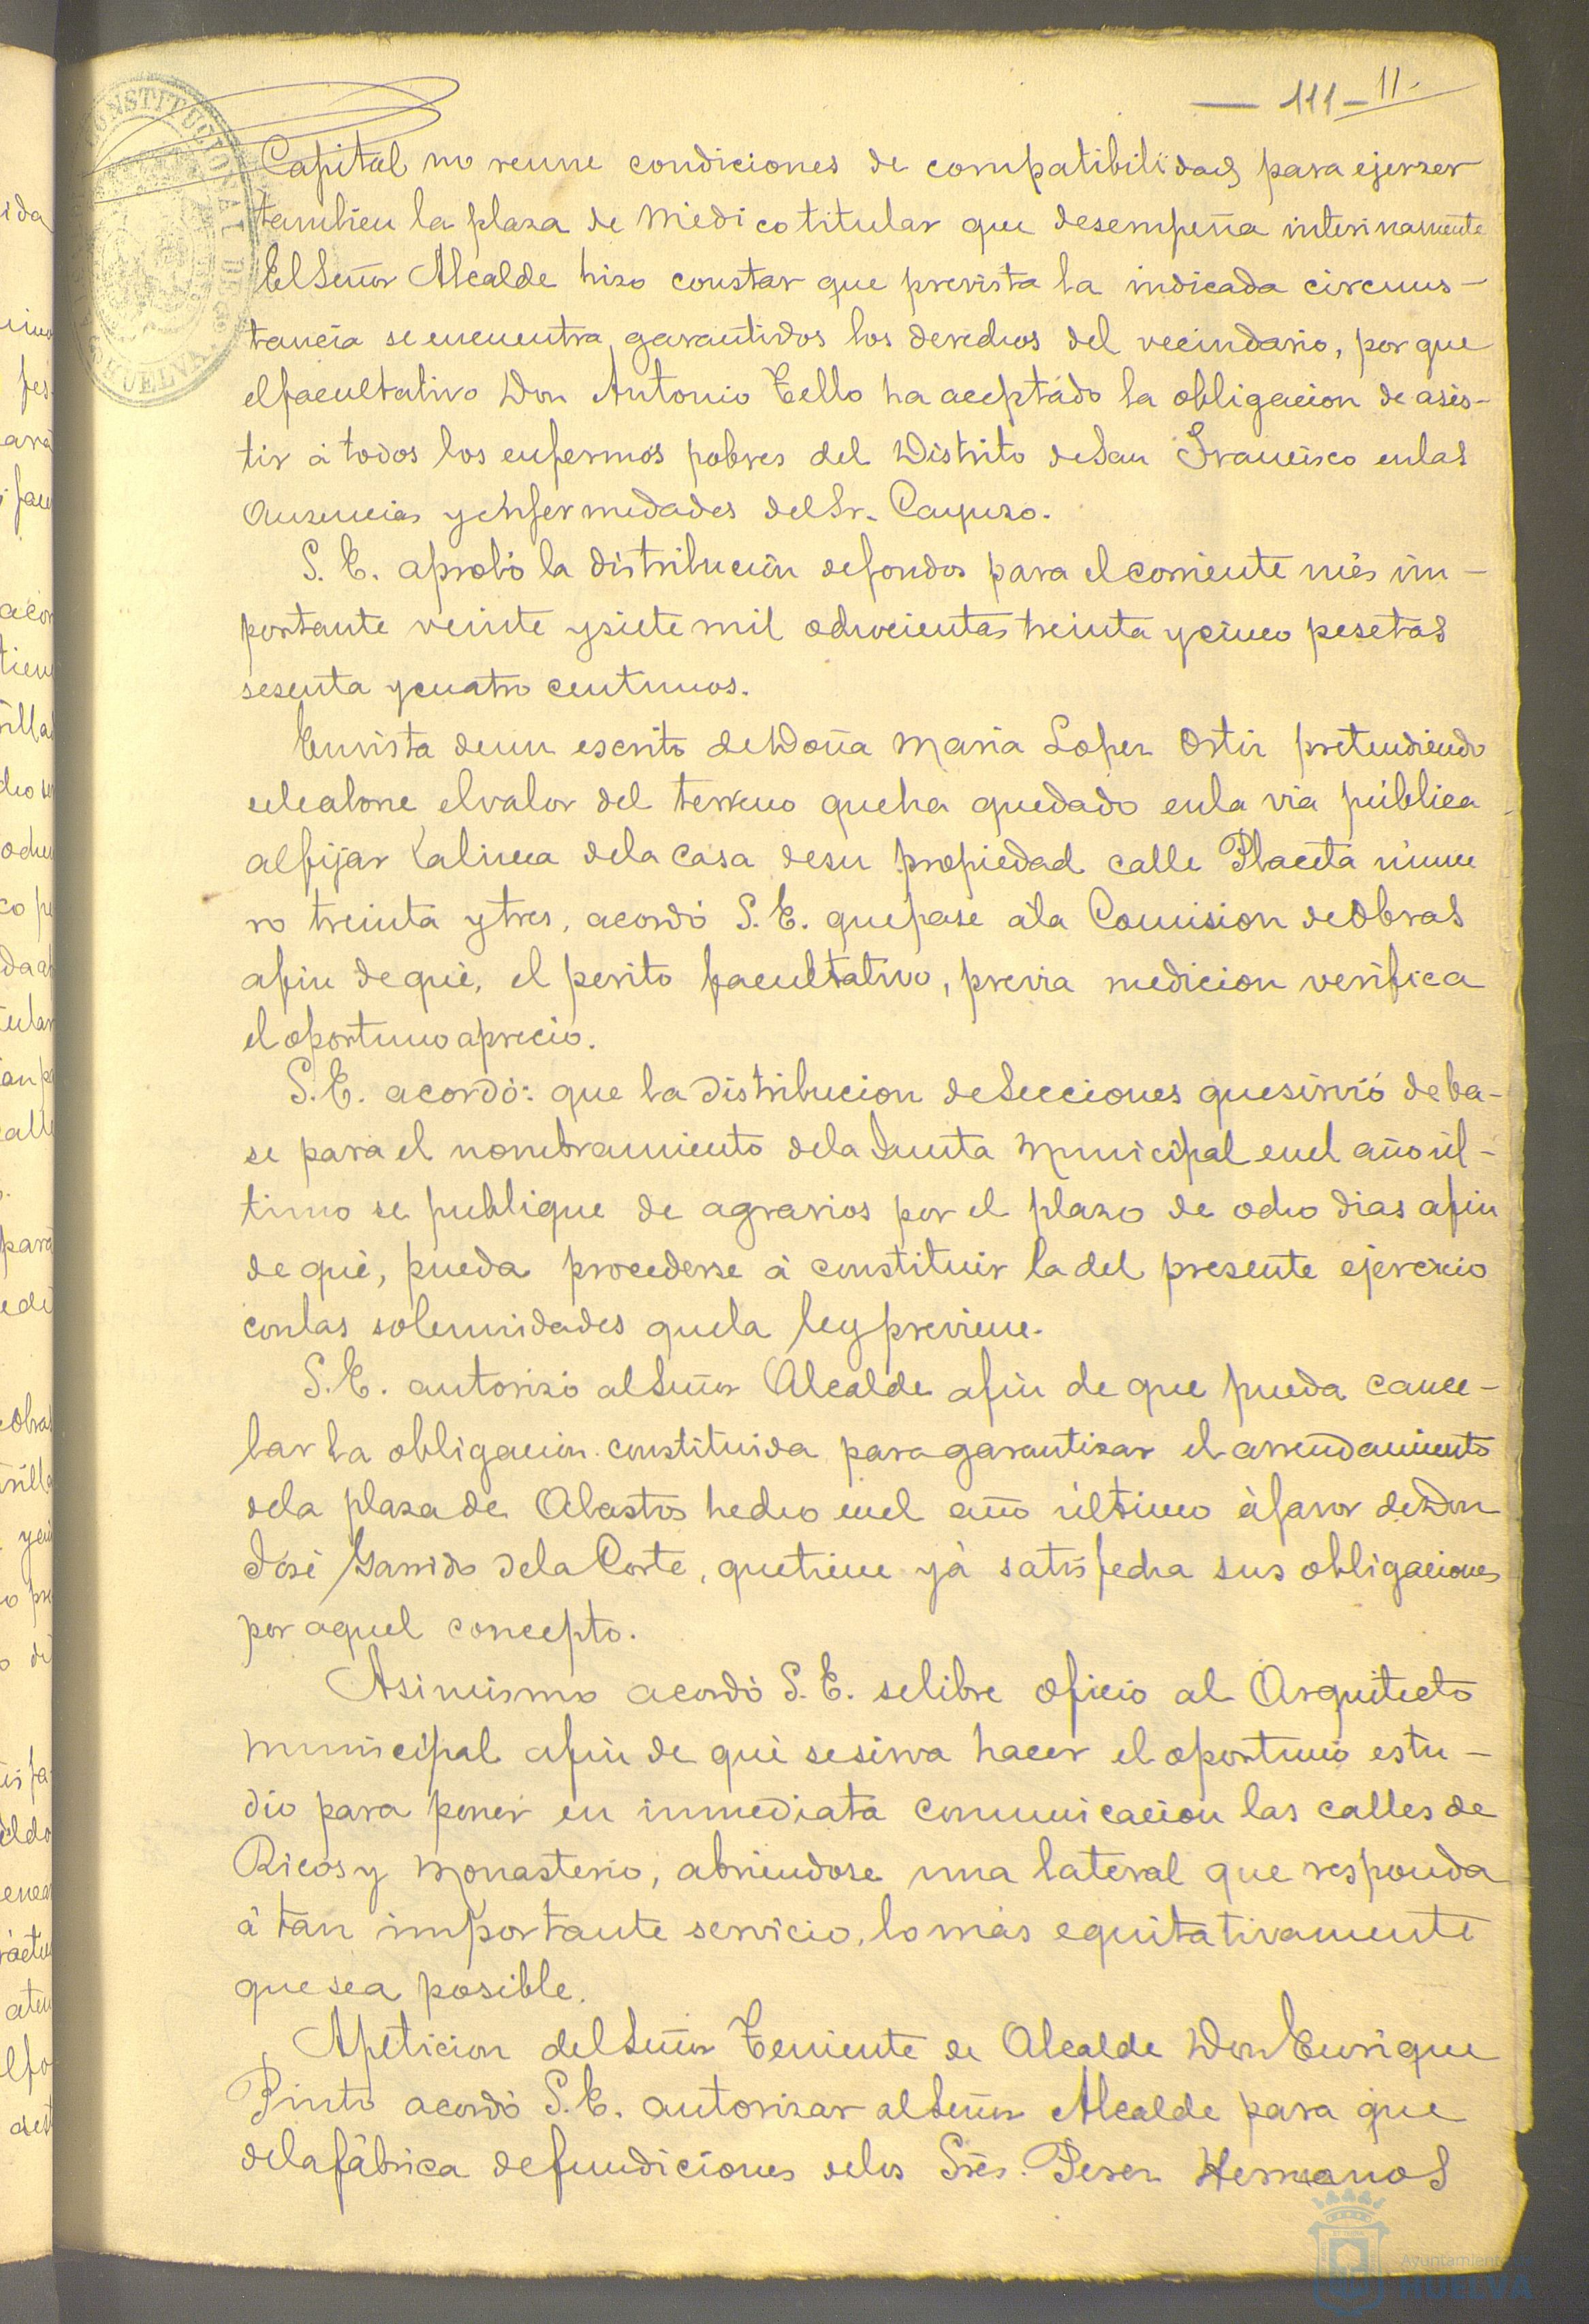 — 111 — 11.
Capital no reune condiciones de compatibilidad para ejerzer
tambien la plaza de Medico titular que desempeña interinamente
El Señor Alcalde hizo constar que prevista la indicada circuns-
tancia se encuentra garantidos los derechos del vecindario, por que
el facultativo Don Antonio Tello ha aceptado la obligacion de asis-
tir á todos los enfermos pobres del Distrito de San Francisco en las
Ausencias y enfermedades del Sr. Cayuzo.
S. E. aprobó la distribución de fondos para el corriente més im-
portante veinte y siete mil ochocientas treinta y cinco pesetas
sesenta y cuatro centimos.
En vista de un escrito de Doña Maria Lopez Ortiz pretendiendo
se le abone el valor del terreno que ha quedado en la via pública
al fijar la linea de la casa de su propiedad calle Placeta núme
ro treinta y tres, acordó S. E. que pase á la Comision de Obras
afin de qué, el perito facultativo, previa medicion verifica
el oportuno aprecio.
S. E. acordó: que la distribucion de Secciones que sirvió de ba-
se para el nombramiento de la Junta Municipal en el año úl-
timo se publique de agravios por el plazo de ocho dias afin
de qué, pueda procederse á constituir la del presente ejercicio
con las solemnidades que la ley previene.
S. E. autorizó al Señor Alcalde afin de que pueda cance-
lar la obligacion constituida para garantizar el arrendamiento
de la plaza de Abastos hecho en el año último á favor de Don
José Garrido de la Corte, que tiene yá satisfecha sus obligaciones
por aquel concepto.
Asimismo acordó S. E. se libre oficio al Arquitecto
Municipal afin de qué se sirva hacer el oportuno estu-
dio para poner en inmediata comunicacion las calles de
Ricos y Monasterio, abriendose una lateral que responda
á tan importante servicio, lo más equitativamente
que sea posible.
A peticion del Señor Teniente de Alcalde Don Enrique
Pinto acordó S. E. autorizar al Señor Alcalde para que
de la fábrica de fundiciones de los Srés. Perez Hermanos
Ayuntamiento
HUELVA